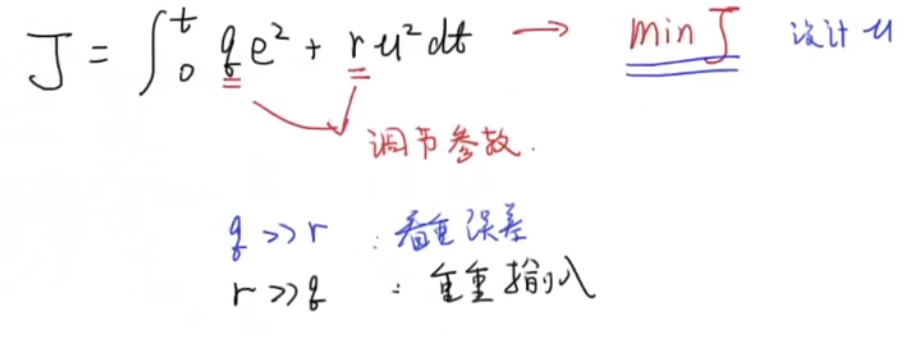 J = ∫₀ᵗ qe² + ru² dt → min J 设计 u
调节参数.
q >> r : 看重误差
r >> q : 重重输入